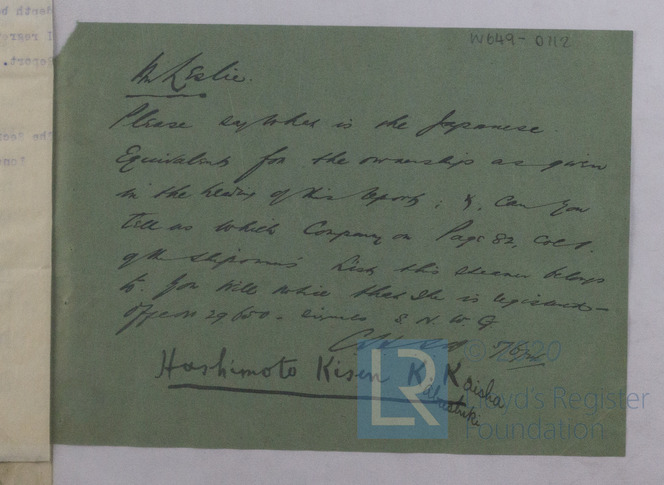 W649-0112
Mr Leslie.
Please say what is the Japanese
Equivalent for the ownership as given
in the heading of this report; &, Can you
tell us which Company on Page 82, Col 1.
of the Shipowners List this steamer belongs
to. You will notice that she is registered
29 S.N.W.G
Hashimoto Kisen K. Kaisha
Kabushiki
© 2020
LR
Lloyd's Register
Foundation